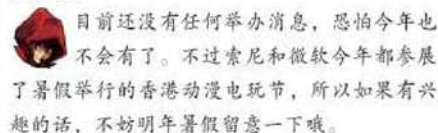 目前还没有任何举办消息，恐怕今年也
不会有了。不过索尼和微软今年都参展
了暑假举行的香港动漫电玩节，所以如果有兴
趣的话，不妨明年暑假留意一下哦。